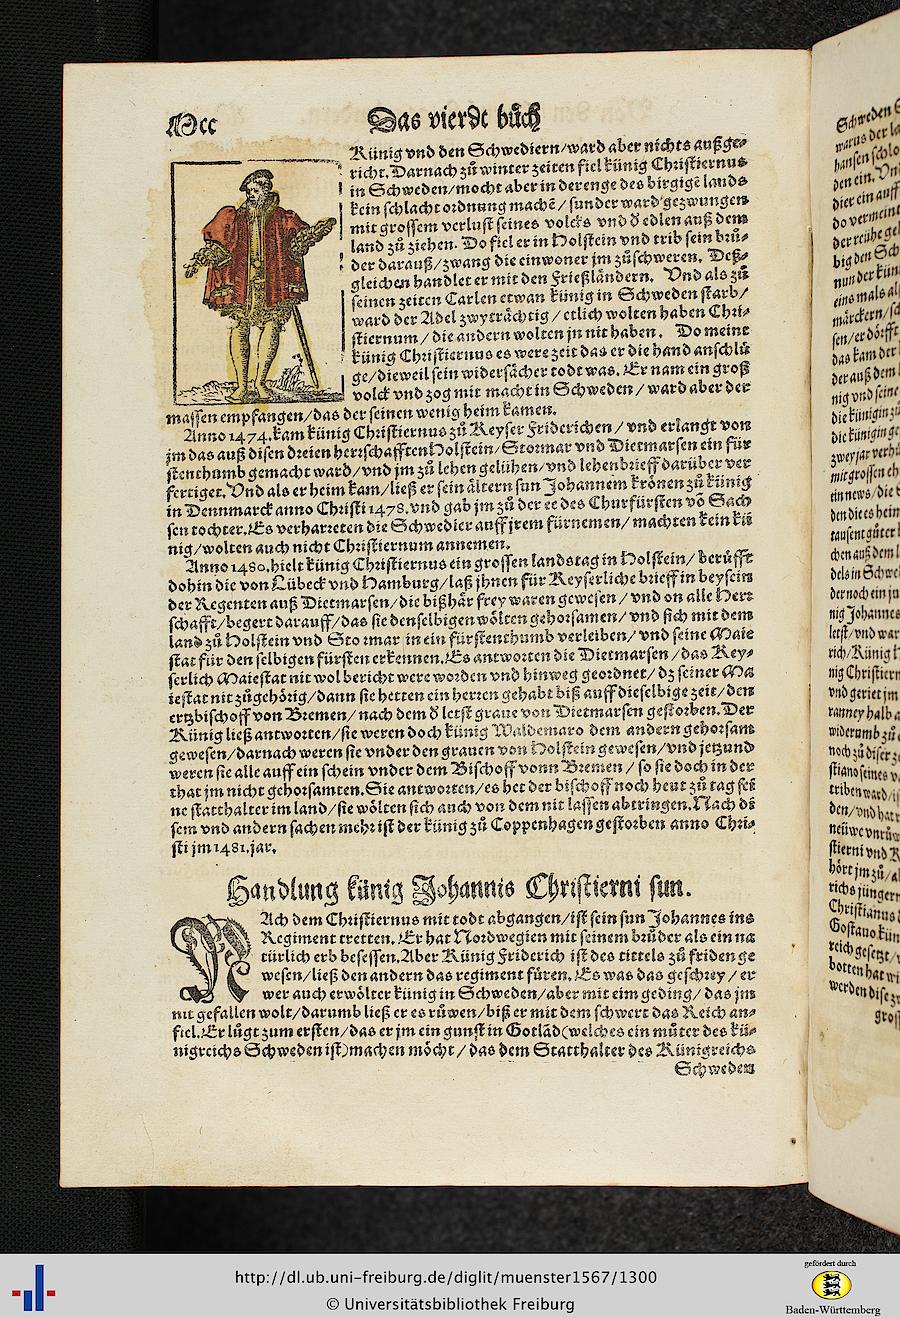 Mcc
Das vierdt bůch
Künig vnd den Schwediern/ward aber nichts außge⸗
richt. Darnach zů winter zeiten fiel künig Christiernus
in Schweden/mocht aber in der enge des birgigẽ lands
kein schlacht ordnung machẽ/sunder ward gezwungen
mit grossem verlust seines volcks vnd ð edlen auß dem
land zů ziehen. Do fiel er in Holstein vnd trib sein brů⸗
der darauß/zwang die einwoner jm zůschweren. Deß⸗
gleichen handlet er mit den Frießländern. Vnd als zů
seinen zeiten Carlen etwan künig in Schweden starb/
ward der Adel zwyträchtig/etlich wolten haben Chri⸗
stiernum/die andern wolten jn nit haben. Do meint
künig Christiernus es were zeit das er die hand anschlů
ge/dieweil sein widersächer todt was. Er nam ein groß
volck vnd zog mit macht in Schweden/ward aber der
massen empfangen/das der seinen wenig heim kamen.
Anno 1474. kam künig Christiernus zů Keyser Friderichen/vnd erlangt von
jm das auß disen dreien herrschafften Holstein/Stormar vnd Dietmarsen ein für
stenthumb gemacht ward/vnd jm zů lehen gelühen/vnd lehenbrieff darüber ver
fertiget. Vnd als er heim kam/ließ er sein ältern sun Johannem krönen zů künig
in Dennmarck anno Christi 1478. vnd gab jm zů der ee des Churfürsten võ Sach
sen tochter. Es verharreten die Schwedier auff jrem fürnemen/machten kein kü
nig/wolten auch nicht Christiernum annemen.
Anno 1480. hielt künig Christiernus ein grossen landstag in Holstein/berüfft
dohin die von Lübeck vnd Hamburg/laß jhnen für Keyserliche brieff in beysein
der Regenten auß Dietmarsen/die bißhär frey waren gewesen/vnd on alle Herr
schafft/begert darauff/das sie denselbigen wölten gehorsamen/vnd sich mit dem
land zů Holstein vnd Stormar in ein fürstenthumb verleiben/vnd seine Maie
stat für den selbigen fürsten erkennen. Es antworten die Dietmarsen/das Key⸗
serlich Maiestat nit wol bericht were worden vnd hinweg geordnet/dz seiner Ma
iestat nit zůgehörig/dann sie hetten ein herren gehabt biß auff dieselbige zeit/den
ertzbischoff von Bremen/nach dem ð letst graue von Dietmarsen gestorben. Der
Künig ließ antworten/sie weren doch künig Waldemaro dem andern gehorsam
gewesen/darnach weren sie vnder den grauen von Holstein gewesen/vnd jetzund
weren sie alle auff ein schein vnder dem Bischoff vonn Bremen/so sie doch in der
that jm nicht gehorsamten. Sie antworten/es het der bischoff noch heut zů tag sei
ne statthalter im land/sie wölten sich auch von dem nit lassen abtringen. Nach di
sem vnd andern sachen mehr ist der künig zů Coppenhagen gestorben anno Chri⸗
sti jm 1481. jar.
Handlung künig Johannis Christierni sun.
NAch dem Christiernus mit todt abgangen/ist sein sun Johannes ins
Regiment tretten. Er hat Nordwegien mit seinem brůder als ein na
türlich erb besessen. Aber Künig Friderich ist des tittels zů friden ge
wesen/ließ den andern das regiment füren. Es was das geschrey/er
wer auch erwölter künig in Schweden/aber mit eim geding/das jm
nit gefallen wolt/darumb ließ er es růwen/biß er mit dem schwert das Reich an⸗
fiel. Er lůgt zum ersten/das er jm ein gunst in Gotlãd (welches ein můter des kü⸗
nigreichs Schweden ist) machen möcht/das dem Statthalter des Künigreichs
Schweden
http://dl.ub.uni-freiburg.de/diglit/muenster1567/1300
© Universitätsbibliothek Freiburg
gefördert durch
Baden-Württemberg